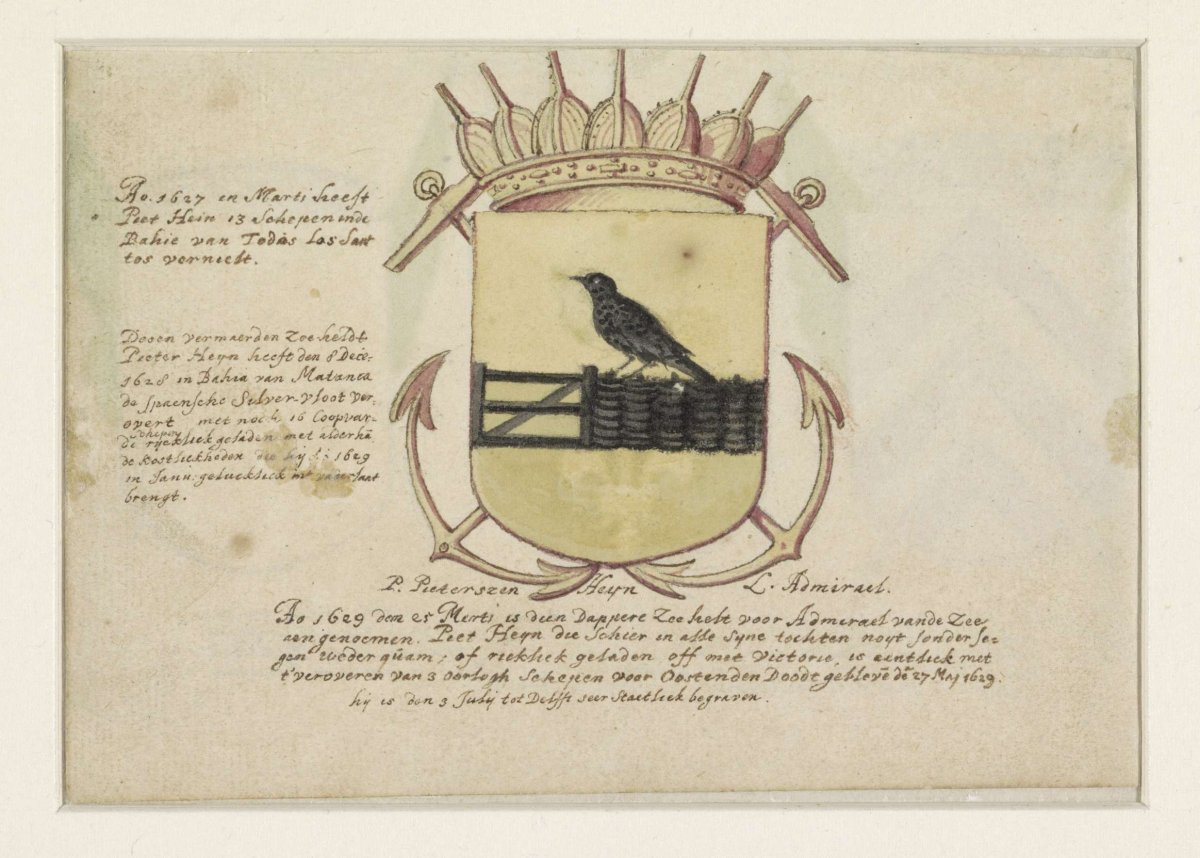 Ao. 1627 en Marti heeft
Piet Hein 13 Schepen inde
Bahie van Todos los San
tos vernielt.
Dooen vermaerden Zoe heldt
Pieter Heyn heeft den 8 Dece:
1628 in Bahia van Matanca
de Spaensche Silver-vloot ver-
overt met noch 16 Coopvar-
de schepen rijcklick geladen met alderhā
de kostlickheden die hij 1629
in Janu: gelucklick int vaderlaat
brengt.
P. Pieterszen Heyn L. Admirael.
Ao 1629 den 25 Merti is deen Dappere Zoe helt voor Admirael vande Zee
aengenoemen. Piet Heyn die Schier in alle syne tochten noyt sonder se-
gen wederquam; of rieklick geladen off met victorie, is eentlick met
t'veroveren van 3 oorlogh Schepen voor Oostenden Doodt geblevē dē 27 Maj 1629.
hij is den 3 Julij tot Delfft seer Staetliek begraven.